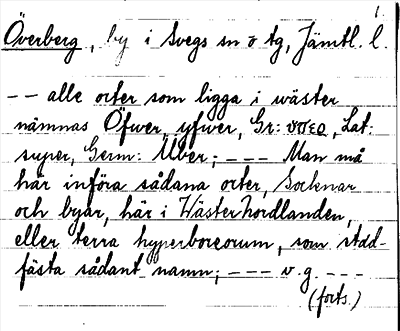 1.
Överberg, by i Svegs sn o tg, Jämtl. l.
-- alle orter som ligga i wäster
nämnas Öfwer, yfwer, Gr: υπερ, Lat:
super, Germ: Über; --- Man må
här införa sådana orter, Socknar
och byar, här i Wästernordlanden,
eller terra hyperboreorum, som stad-
fästa sådant namn; --- v.g. ---
(forts.)